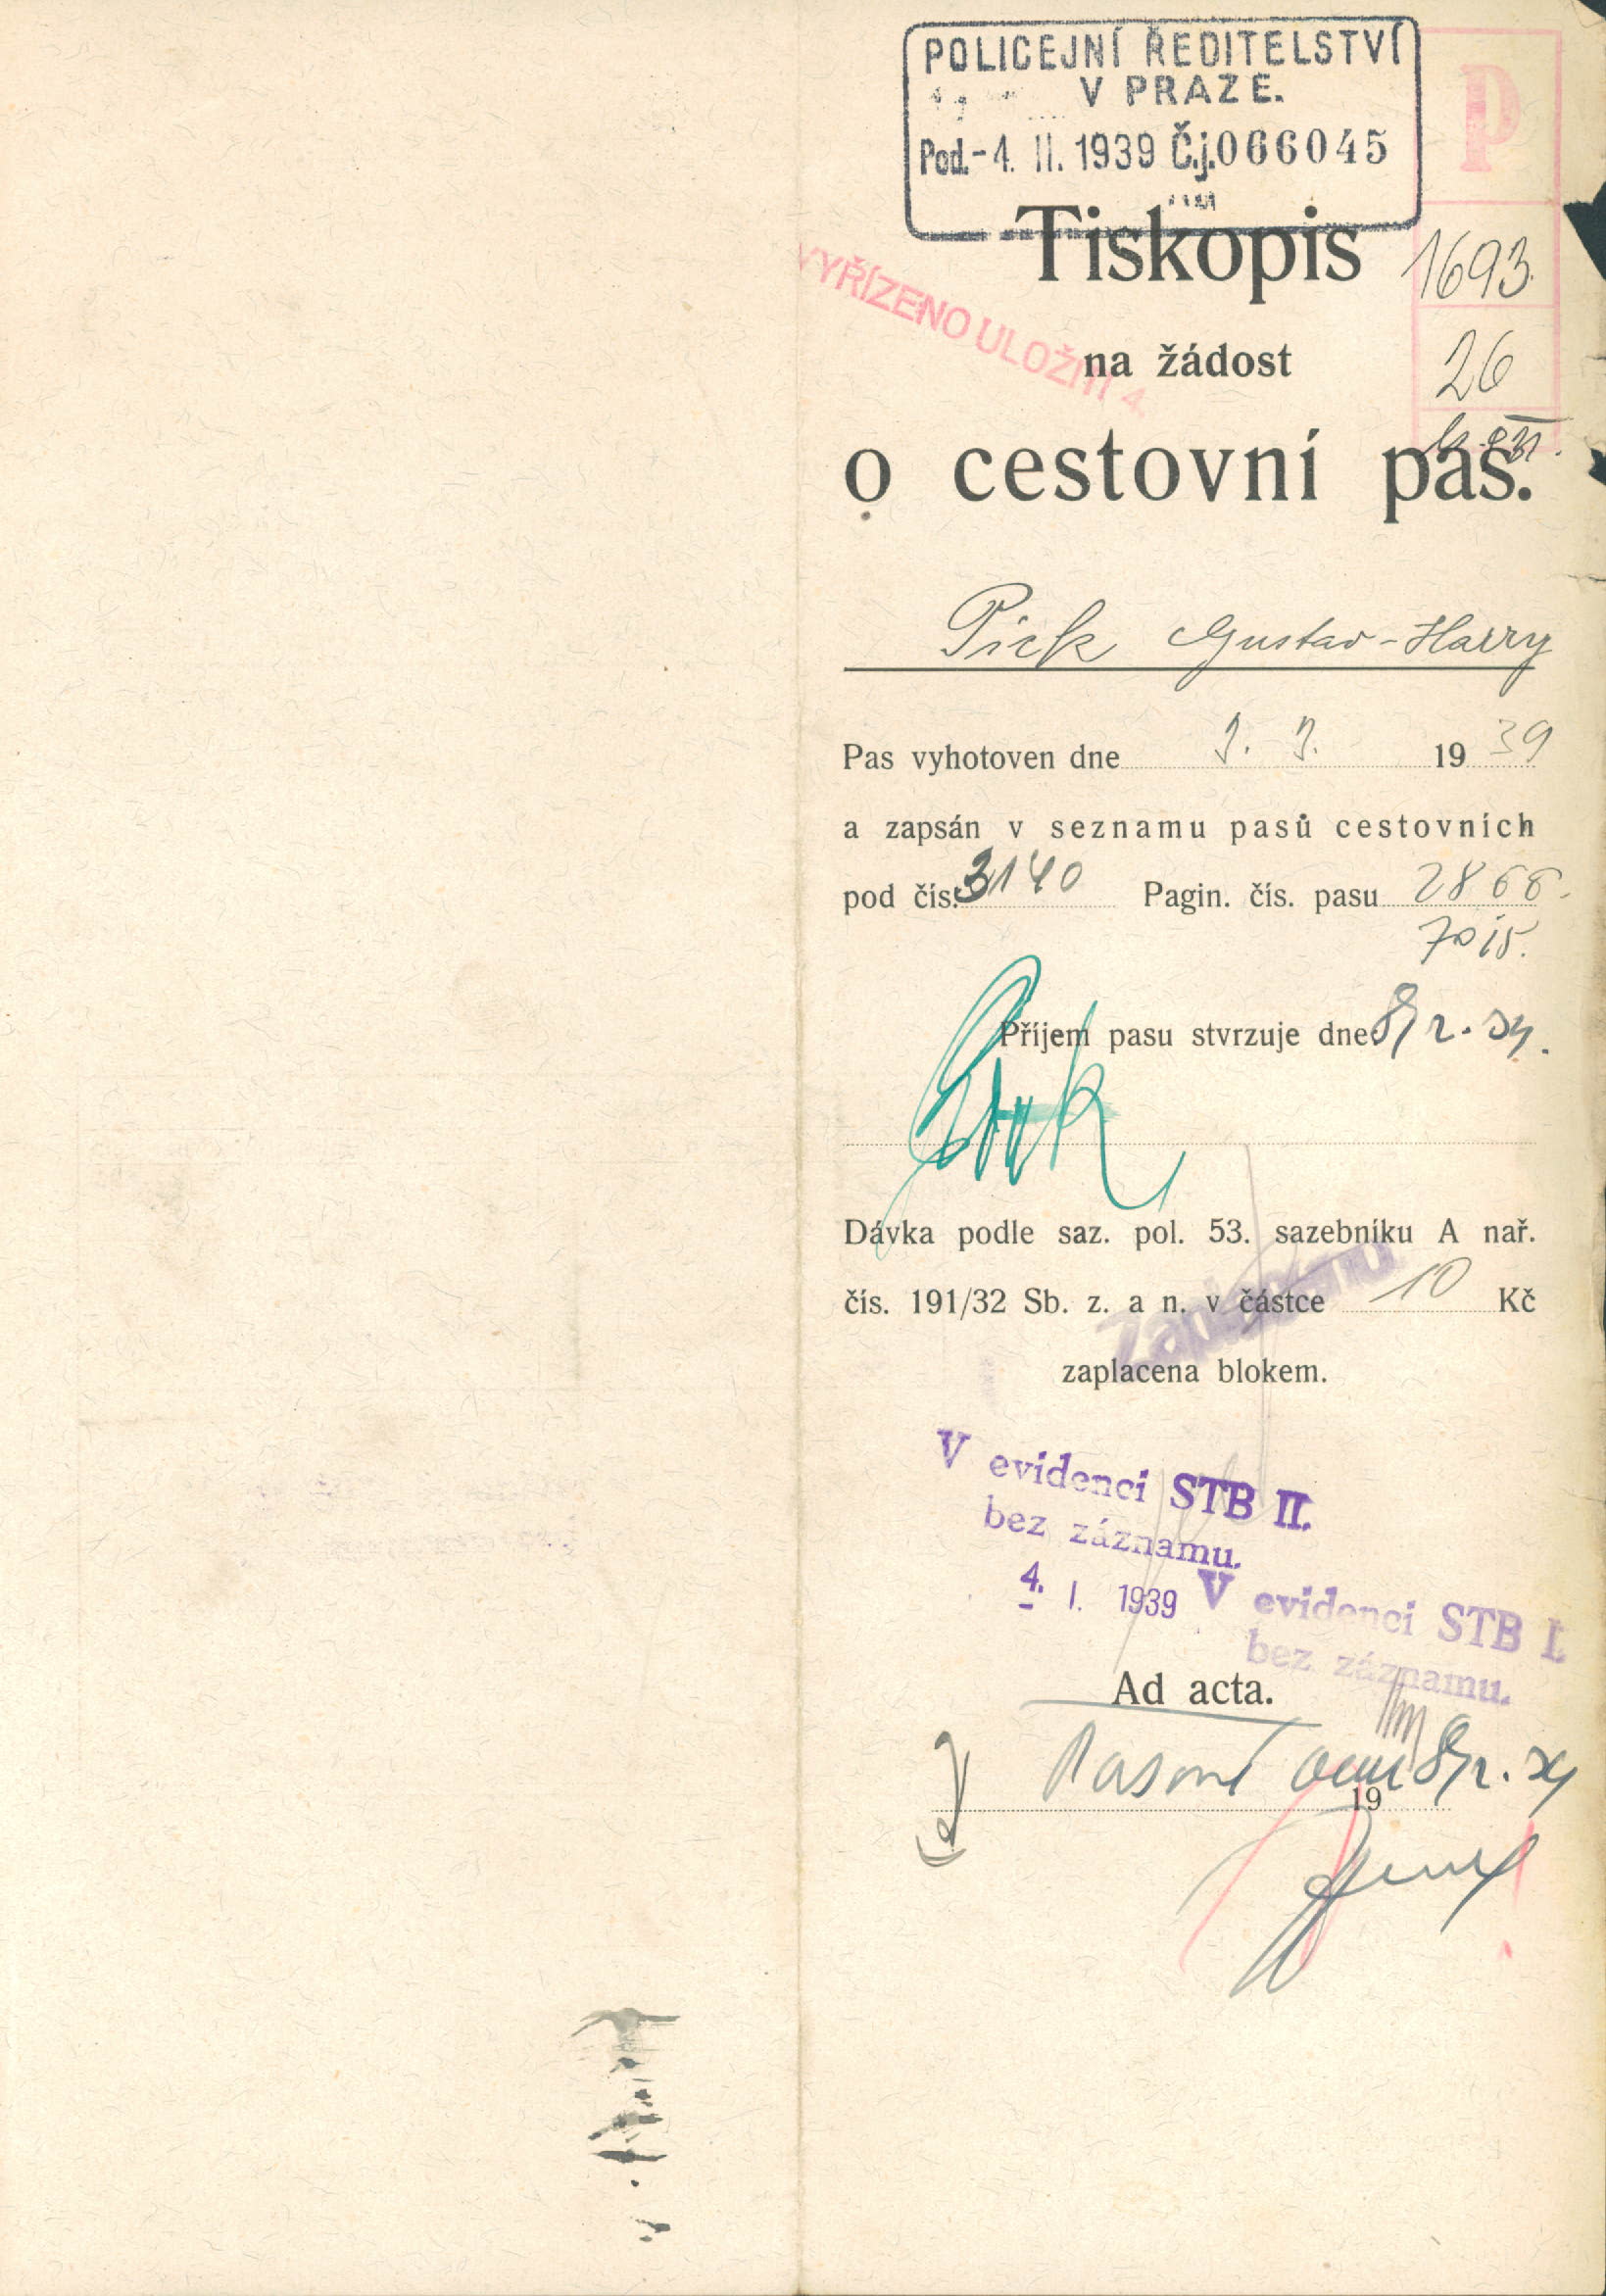 POLICEJNÍ ŘEDITELSTVÍ
V PRAZE.
Pod.-4. II. 1939 Č.j.066045
P
1693.
26
VYŘÍZENO ULOŽITI 4.
Tiskopis
na žádost
o cestovní pas.
Pick Gustav-Harry
Pas vyhotoven dne 1939
a zapsán v seznamu pasů cestovních
pod čís. 3140 Pagin. čís. pasu 2866.
Příjem pasu stvrzuje dne
Dávka podle saz. pol. 53. sazebníku A nař.
čís. 191/32 Sb. z. a n. v částce 10 Kč
Zaplaceno
zaplacena blokem.
V evidenci STB II.
bez záznamu.
4. I. 1939
V evidenci STB I.
bez záznamu.
Ad acta.
19